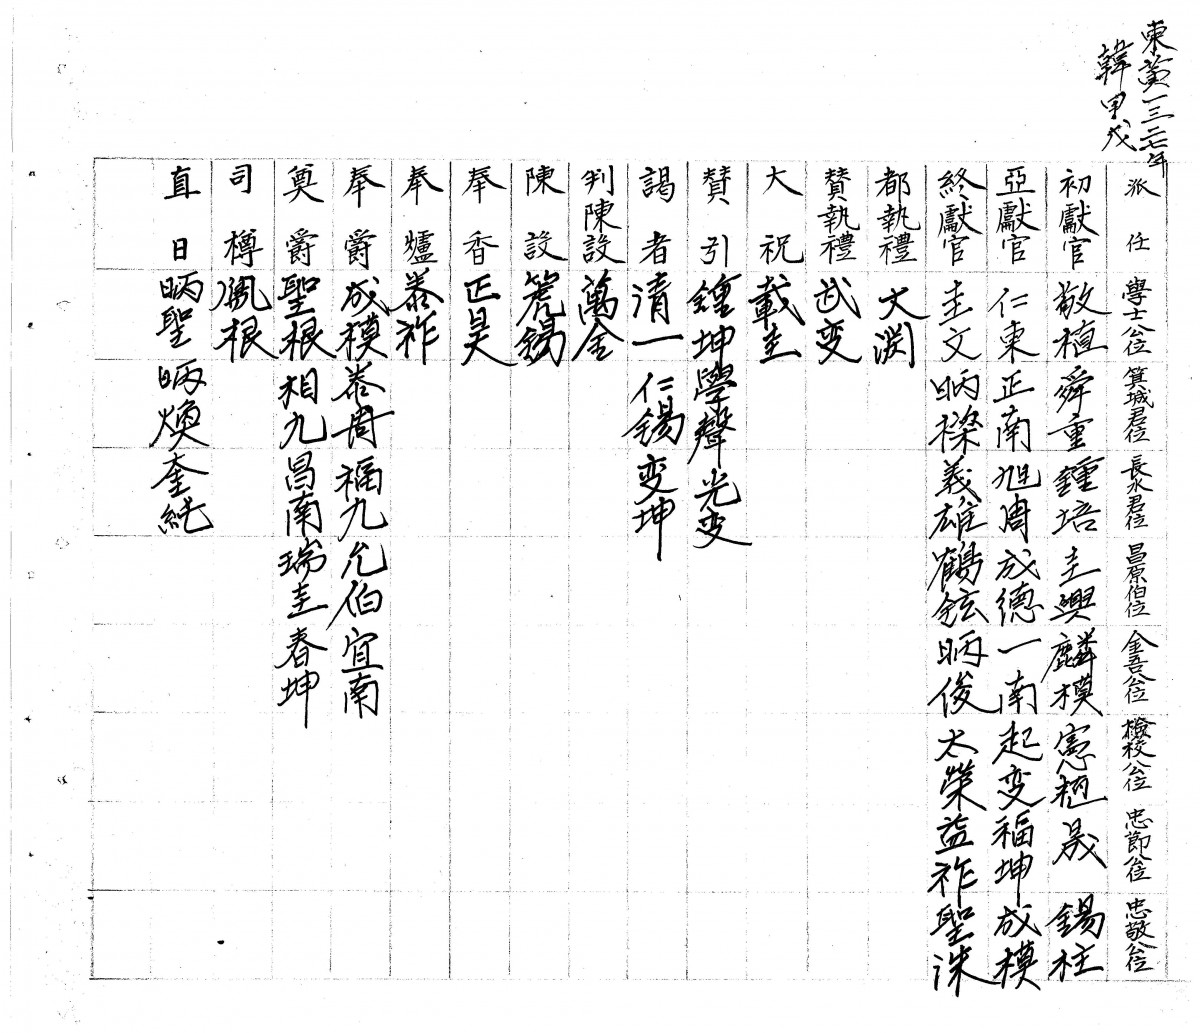 東黃一三二七年
韓甲戌
派任 學士公位 箕城君位 長水君位 昌原伯位 金吾公位 檢校公位 忠節公位 忠敬公位
初獻官 敬植 舜重 鍾培 圭興 麟模 憲植 晟 錫柱
亞獻官 仁東 正南 旭周 成德 一南 起変 福坤 成模
終獻官 圭文 昞樑 義雄 鶴鉉 昞俊 太榮 益祚 聖洙
都執禮 大淵
贊執禮 武変
大祝 載圭
贊引 鍾坤 學聲 光変
謁者 清一 仁錫 変坤
判陳設 萬金
陳設 錫
奉香 正昊
奉爐 泰祚
奉爵 成模 泰周 福九 允伯 宜南
奠爵 聖根 相九 昌南 瑞圭 春坤
司樽 根
直日 昞聖 昞煥 奎純